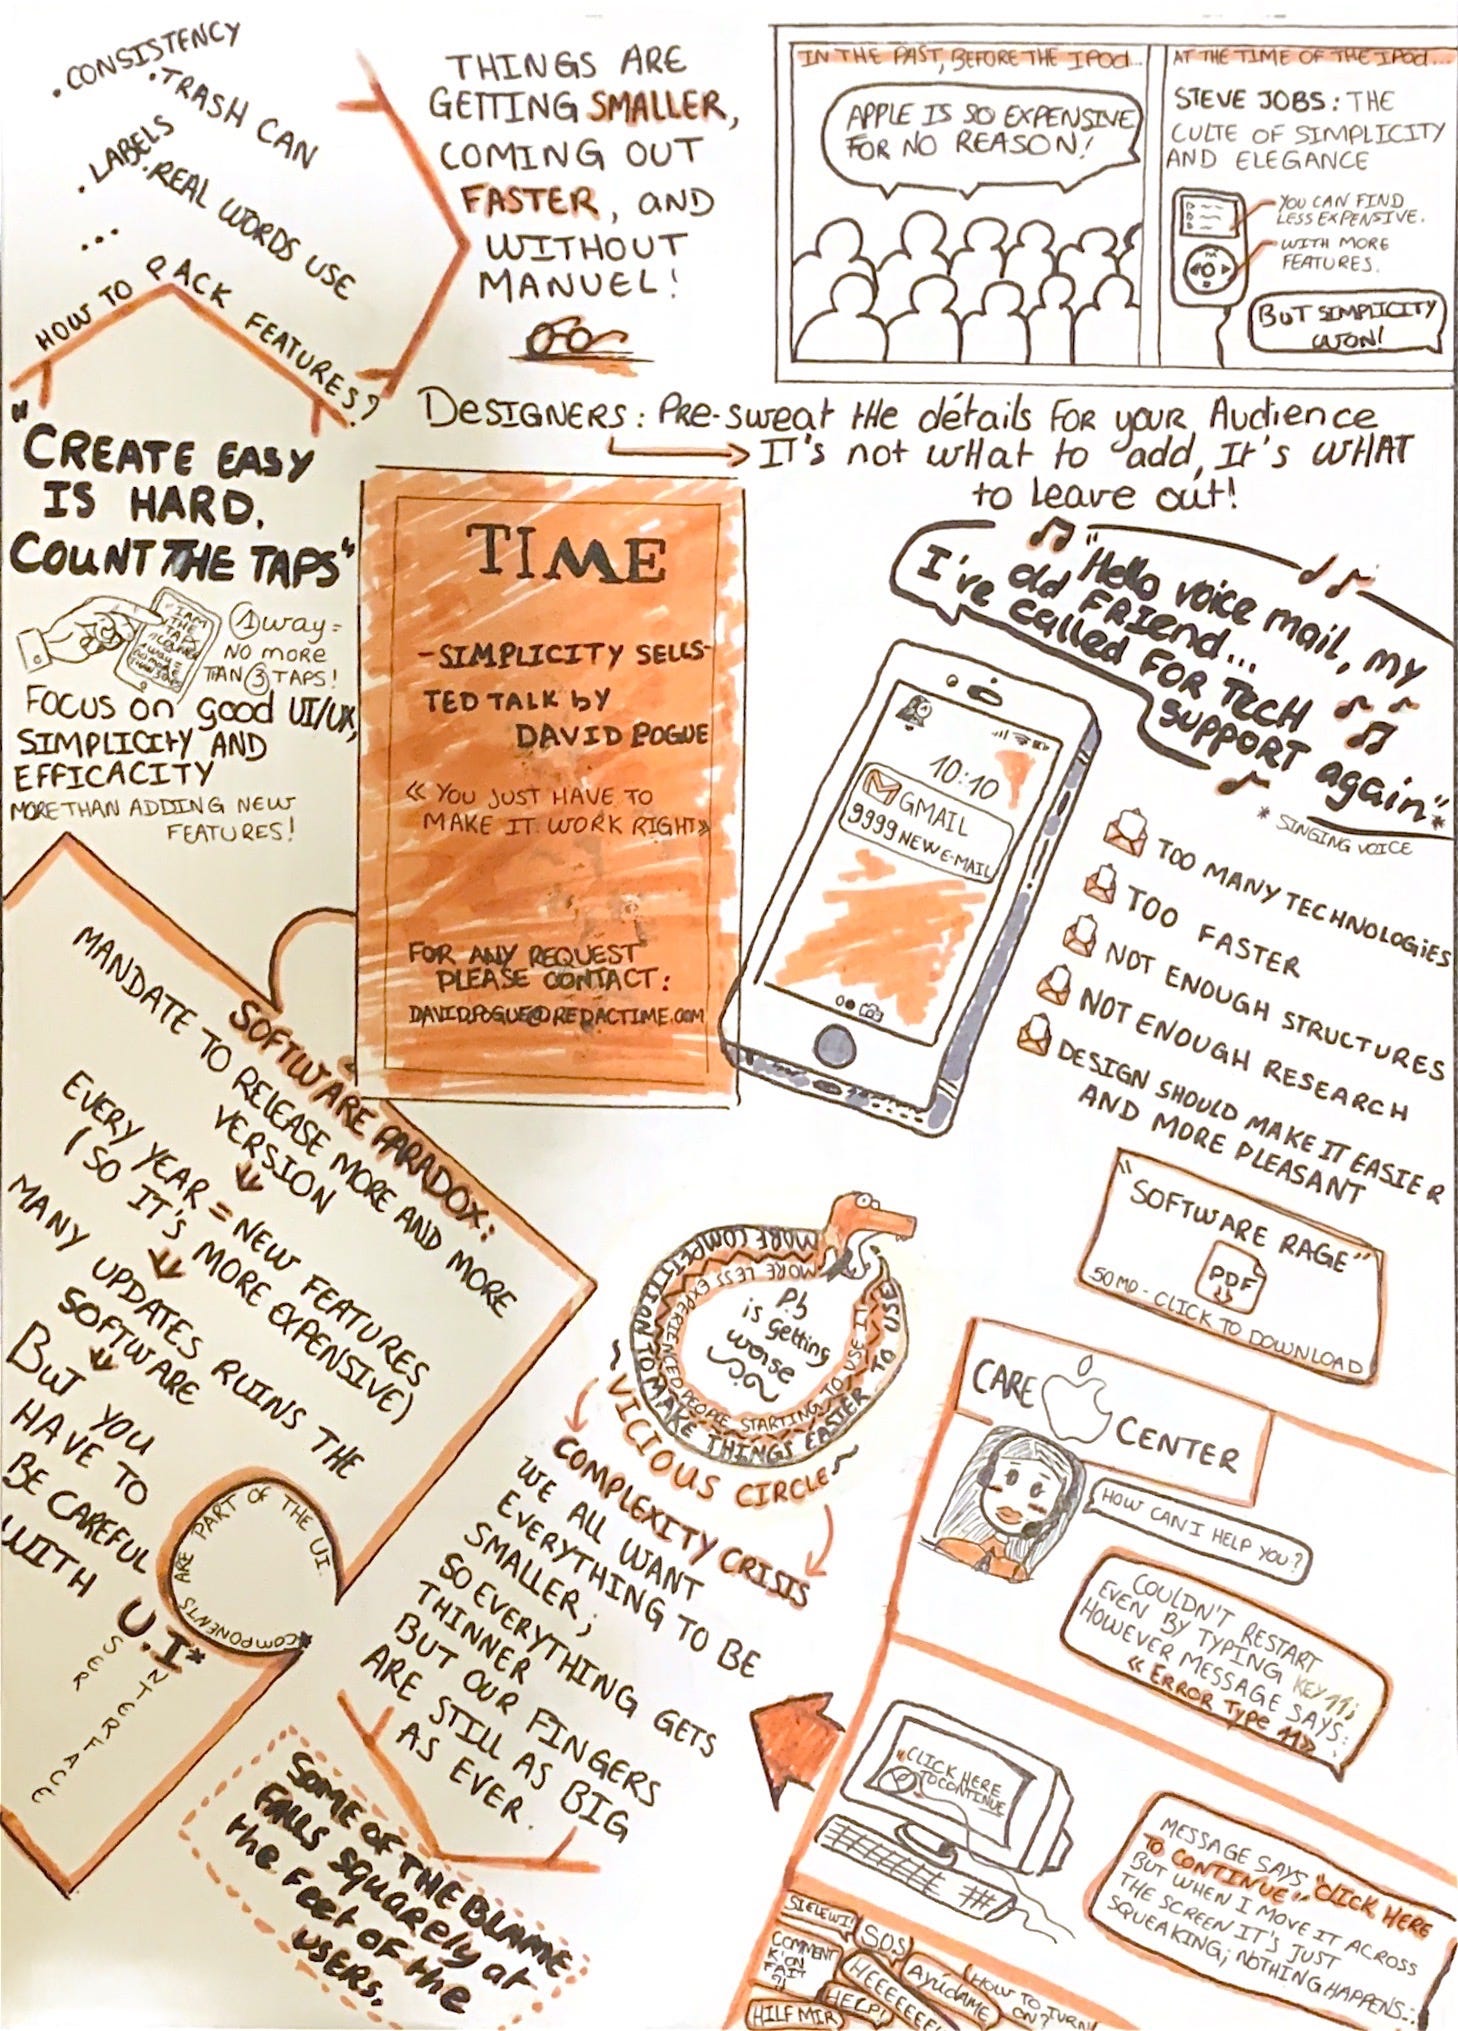 . CONSISTENCY
. TRASH CAN
. LABELS
. REAL WORDS USE
...
HOW TO PACK FEATURES?
THINGS ARE
GETTING SMALLER,
COMING OUT
FASTER, AND
WITHOUT
MANUEL!
IN THE PAST, BEFORE THE IPOD...
APPLE IS SO EXPENSIVE
FOR NO REASON!
AT THE TIME OF THE IPOD...
STEVE JOBS : THE
CULTE OF SIMPLICITY
AND ELEGANCE
YOU CAN FIND
LESS EXPENSIVE.
WITH MORE
FEATURES.
BUT SIMPLICITY
WON!
DESIGNERS : PRE-SWEAT THE détails FOR YOUR Audience
IT'S not WHat to add, It's WHAT
to Leave out!
"CREATE EASY
IS HARD.
COUNT THE TAPS"
1 WAY =
NO MORE
THAN 3 TAPS!
FOCUS ON good UI/UX,
SIMPLICITY AND
EFFICACITY
MORE THAN ADDING NEW
FEATURES!
TIME
-SIMPLICITY SELLS-
TED TALK by
DAVID POGUE
« YOU JUST HAVE TO
MAKE IT WORK RIGHT»
FOR ANY REQUEST
PLEASE CONTACT :
DAVID.POGUE@REDACTIME.COM
"Hello voice mail, my
old FRIEND...
I've called FOR TECH
SUPPORT again"*
* SINGING VOICE
10:10
GMAIL
9999 NEW E-MAIL
TOO MANY TECHNOLOGIES
TOO FASTER
NOT ENOUGH STRUCTURES
NOT ENOUGH RESEARCH
DESIGN SHOULD MAKE IT EASIER
AND MORE PLEASANT
"SOFTWARE RAGE"
PDF
50MO - CLICK TO DOWNLOAD
SOFTWARE PARADOX:
MANDATE TO RELEASE MORE AND MORE
VERSION
EVERY YEAR = NEW FEATURES
(SO IT'S MORE EXPENSIVE)
MANY UPDATES RUINS THE
SOFTWARE
BUT YOU
HAVE TO
BE CAREFUL
WITH U.I*
USER
INTERFACE
*COMPONENTS ARE PART OF THE UI.
MORE COMPETITION TO MAKE THINGS EASIER TO USE
MORE LESS EXPERIENCED PEOPLE STARTING TO USE IT
Pb
is getting
worse
~ VICIOUS CIRCLE ~
COMPLEXITY CRISIS
WE ALL WANT
EVERYTHING TO BE
SMALLER;
SO EVERYTHING GETS
THINNER
BUT OUR FINGERS
ARE STILL AS BIG
AS EVER.
SOME OF THE BLAME
FALLS SQUARELY at
the FEET OF the
USERS.
CARE CENTER
HOW CAN I HELP YOU?
COULDN'T RESTART
EVEN BY TYPING KEY 11;
HOWEVER MESSAGE SAYS:
« ERROR TYPE 11»
"CLICK HERE
TO CONTINUE
MESSAGE SAYS "CLICK HERE
TO CONTINUE"
BUT WHEN I MOVE IT ACROSS
THE SCREEN IT'S JUST
SQUEAKING; NOTHING HAPPENS...
SIELEWI!
SOS
COMMENT
K'ON
FAIT
?!
HEEEEEEE!
AYÚDAME
HOW TO TURN
ON?
HELP!
HILF MIR